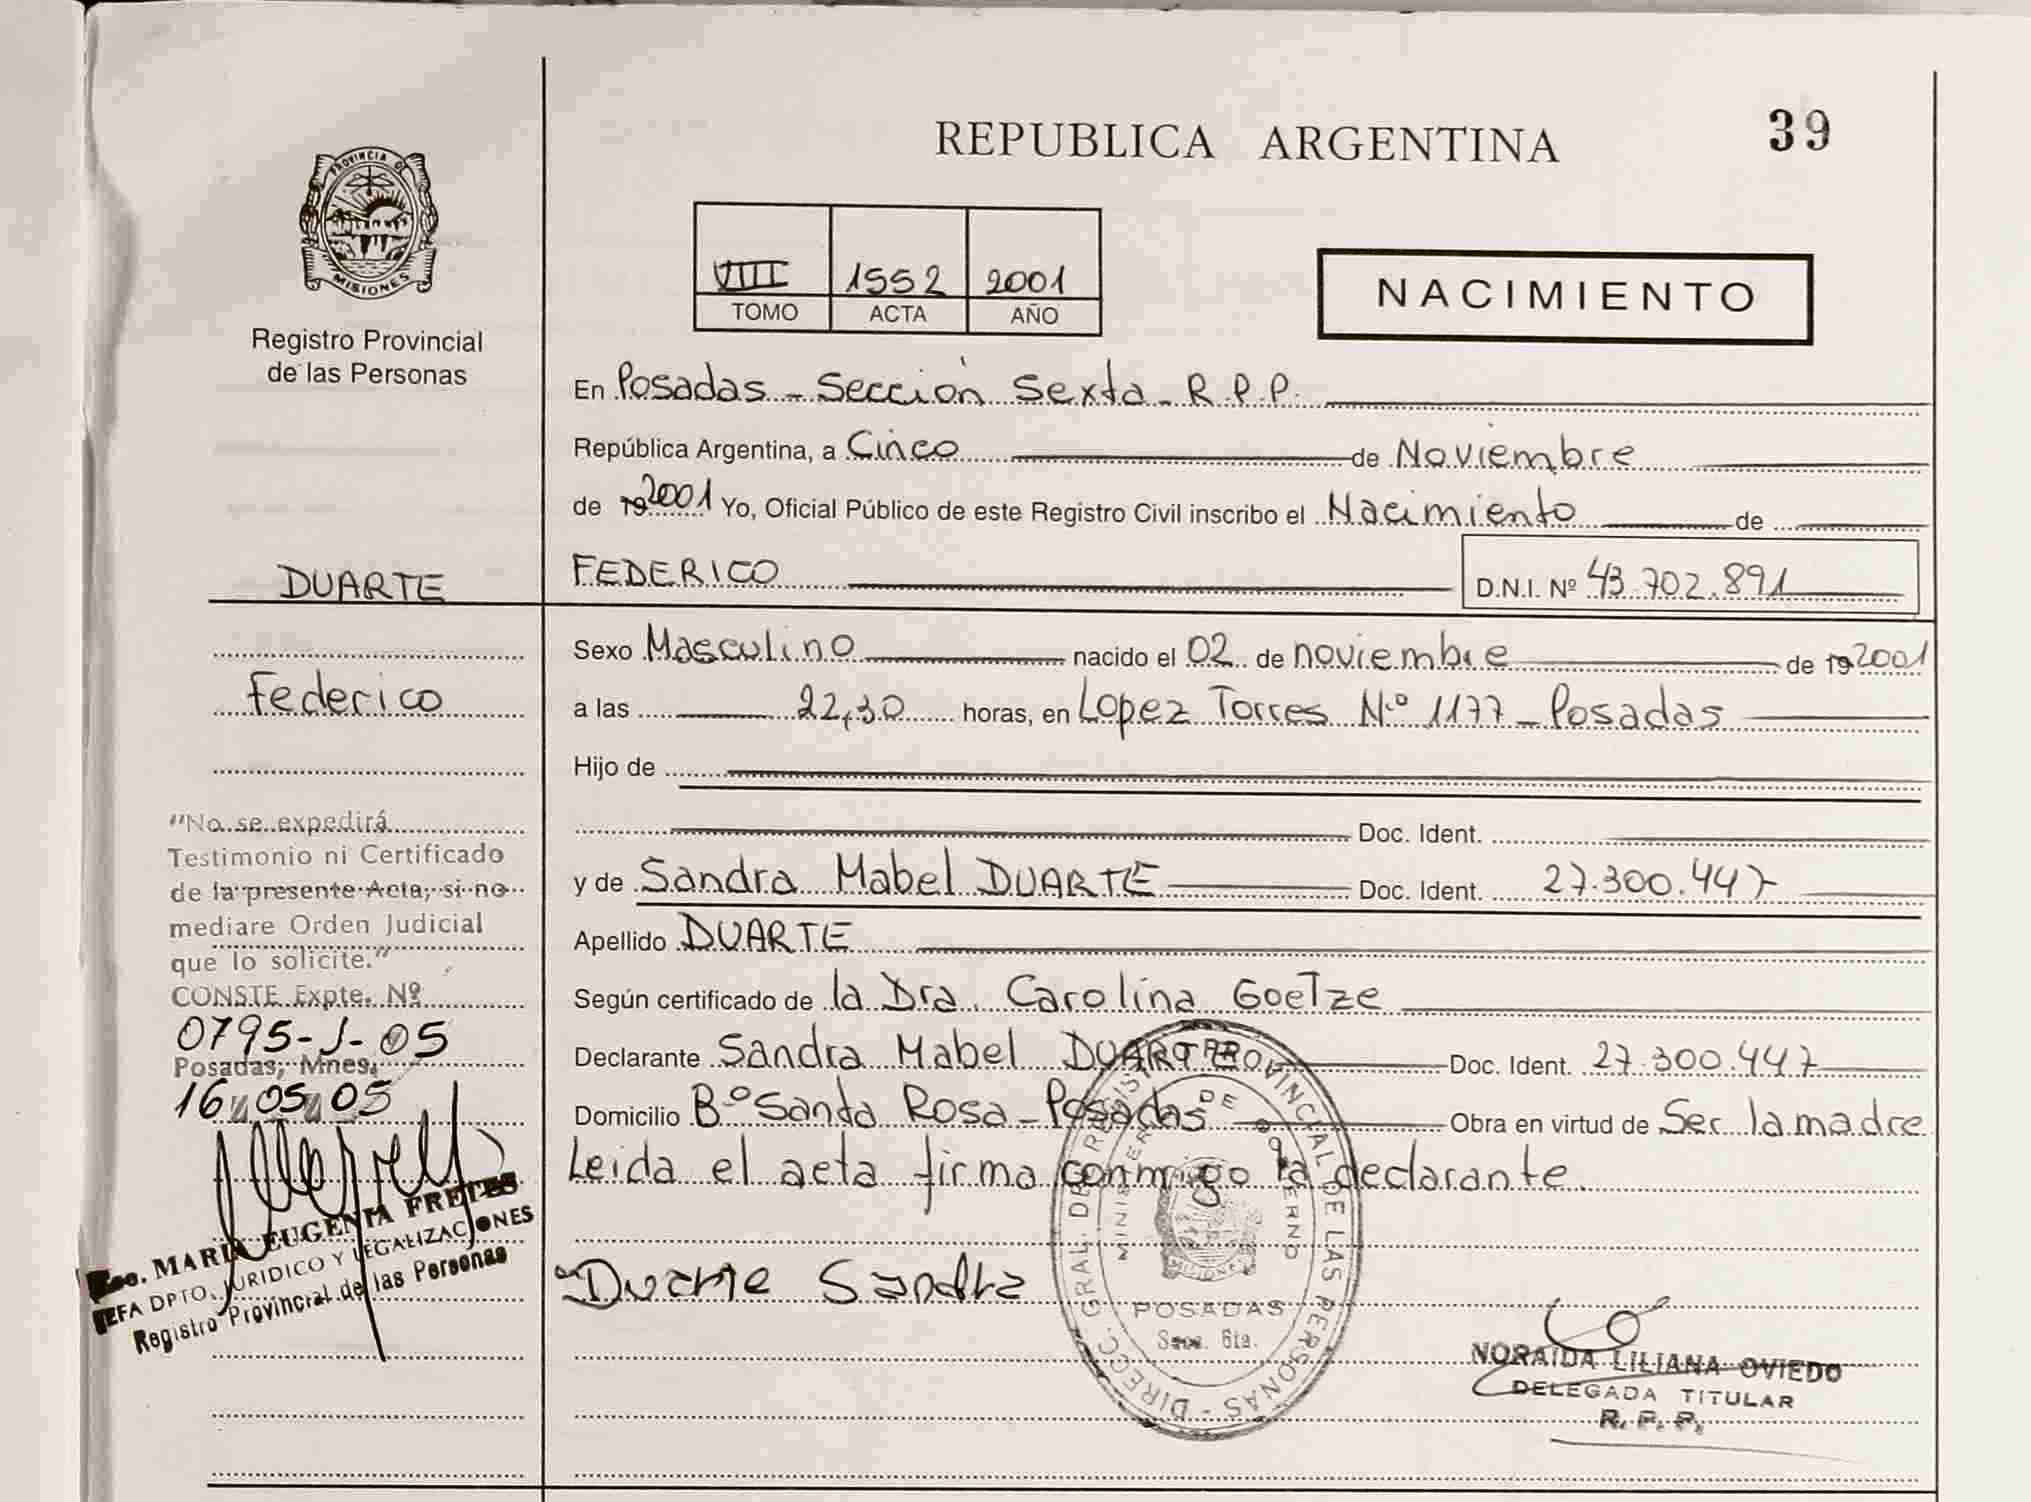 REPUBLICA ARGENTINA
39
PROVINCIA DE
MISIONES
Registro Provincial
de las Personas
VIII 1552 2001
TOMO ACTA AÑO
NACIMIENTO
En Posadas - Sección Sexta - R.P.P.
República Argentina, a Cinco de Noviembre
de 19 2001 Yo, Oficial Público de este Registro Civil inscribo el Nacimiento de
DUARTE
FEDERICO
D.N.I. Nº 43.702.891
Sexo Masculino nacido el 02 de noviembre de 19 2001
Federico
a las 22,30 horas, en Lopez Torres N.º 1177 - Posadas
Hijo de
Doc. Ident.
y de Sandra Mabel DUARTE Doc. Ident. 27.300.447
Apellido DUARTE
Según certificado de la Dra. Carolina Goetze
Declarante Sandra Mabel DUARTE Doc. Ident. 27.300.447
Domicilio Bº Santa Rosa - Posadas Obra en virtud de Ser la madre
Leida el acta firma conmigo la declarante.
Duarte Sandra
"No se expedirá
Testimonio ni Certificado
de la presente Acta, si no
mediare Orden Judicial
que lo solicite."
CONSTE Expte. Nº
0795-J-05
Posadas, Mnes.
16 05 05
MARIA EUGENIA FRETES
JEFA DPTO. JURIDICO Y LEGALIZACIONES
Registro Provincial de las Personas
DIRECC. GRAL. DE REGIST. PROVINCIAL DE LAS PERSONAS
MINISTERIO DE GOBIERNO
POSADAS
Secc. 6ta.
NORAIDA LILIANA OVIEDO
DELEGADA TITULAR
R. P. P.